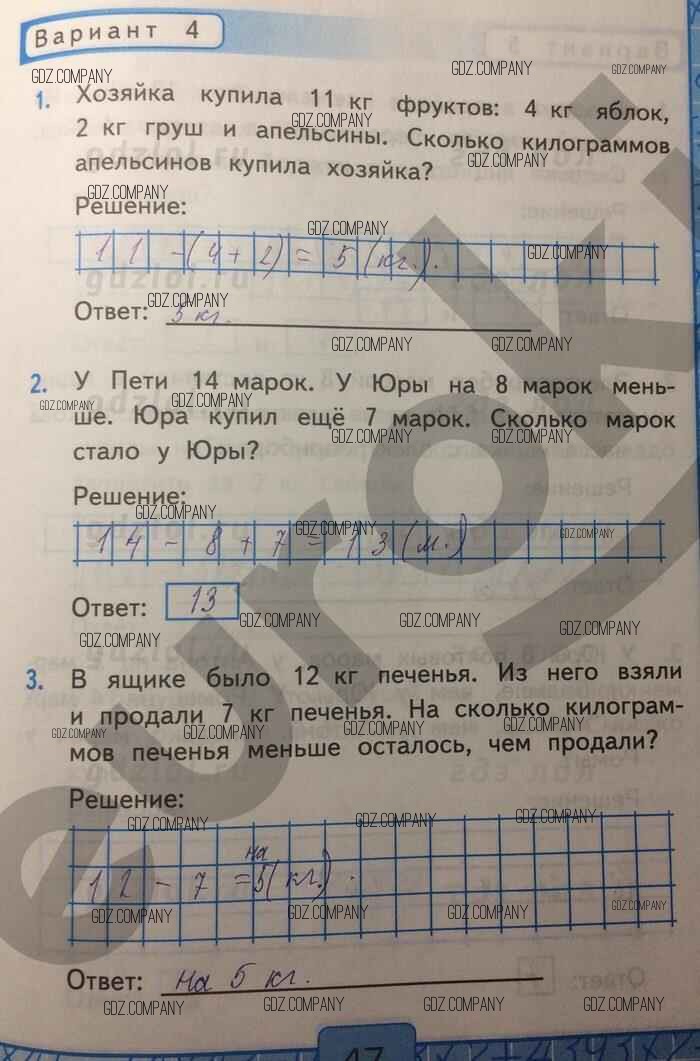 Вариант 4
1. Хозяйка купила 11 кг фруктов: 4 кг яблок,
2 кг груш и апельсины. Сколько килограммов
апельсинов купила хозяйка?
Решение:
11 - (4 + 2) = 5 (кг.).
Ответ: 5 кг.
2. У Пети 14 марок. У Юры на 8 марок мень-
ше. Юра купил ещё 7 марок. Сколько марок
стало у Юры?
Решение:
14 - 8 + 7 = 13 (м.)
Ответ: 13
3. В ящике было 12 кг печенья. Из него взяли
и продали 7 кг печенья. На сколько килограм-
мов печенья меньше осталось, чем продали?
Решение:
на
12 - 7 = 5 (кг.).
Ответ: на 5 кг.
47
GDZ.COMPANY
euroki